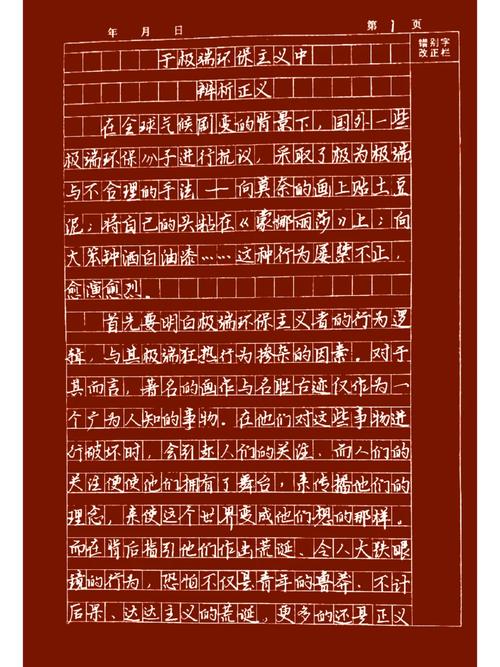 年 月 日 第 1 页
错别字
改正栏
于极端环保主义中
辨析正义
在全球气候剧变的背景下，国外一些
极端环保分子进行抗议，采取了极为极端
与不合理的手法——向莫奈的画上贴土豆
泥；将自己的头粘在《蒙娜丽莎》上；向
大笨钟洒白油漆……这种行为屡禁不止，
愈演愈烈。
首先要明白极端环保主义者的行为逻
辑，与其极端狂热行为掺杂的因素。对于
其而言，著名的画作与名胜古迹仅作为一
个广为人知的事物。在他们对这些事物进
行破坏时，会引起人们的关注，而人们的
关注便使他们拥有了舞台，来传播他们的
理念，来使这个世界变成他们想的那样。
而在背后指引他们作出荒诞、令人大跌眼
镜的行为，恐怕不仅是青年的鲁莽、不计
后果、达达主义的荒诞，更多的还是正义